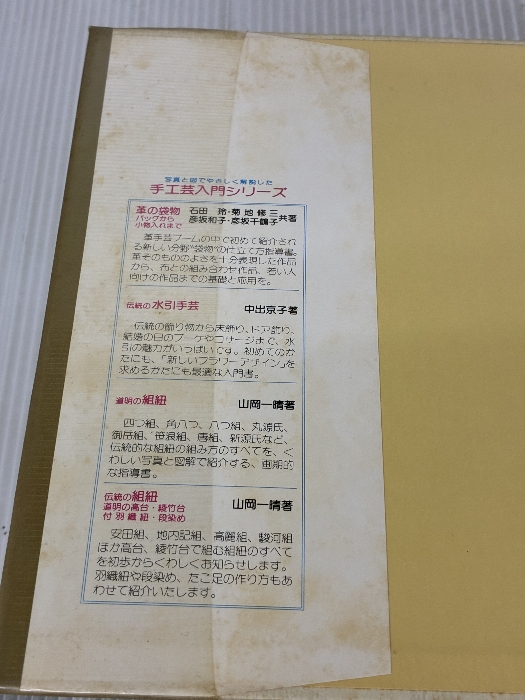 写真と図でやさしく解説した
手工芸入門シリーズ
革の袋物 石田 玲・菊地修三
バッグから 彦坂和子・彦坂千鶴子共著
小物入れまで
革手芸ブームの中で初めて紹介され
る新しい分野"袋物"の仕立て方指導書。
革そのもののよさを十分表現した作品
から、布との組み合わせ作品、若い人
向けの作品までの基礎と応用を。
伝統の水引手芸 中出京子著
伝統の飾り物から床飾り、ドア飾り、
結婚の日のブーケやコサージまで、水
引の魅力がいっぱいです。初めてのか
たにも、「新しいフラワーデザイン」を
求めるかたにも最適な入門書。
道明の組紐 山岡一晴著
四つ組、角八つ、八つ組、丸源氏、
御岳組、笹浪組、唐組、新源氏など、
伝統的な組紐の組み方のすべてを、く
わしい写真と図解で紹介する、画期的
な指導書。
伝統の組紐
道明の高台・綾竹台 山岡一晴著
付 羽織紐・段染め
安田組、地内記組、高麗組、駿河組
ほか高台、綾竹台で組む組紐のすべて
を初歩からくわしくお知らせします。
羽織紐や段染め、たこ足の作り方もあ
わせて紹介いたします。